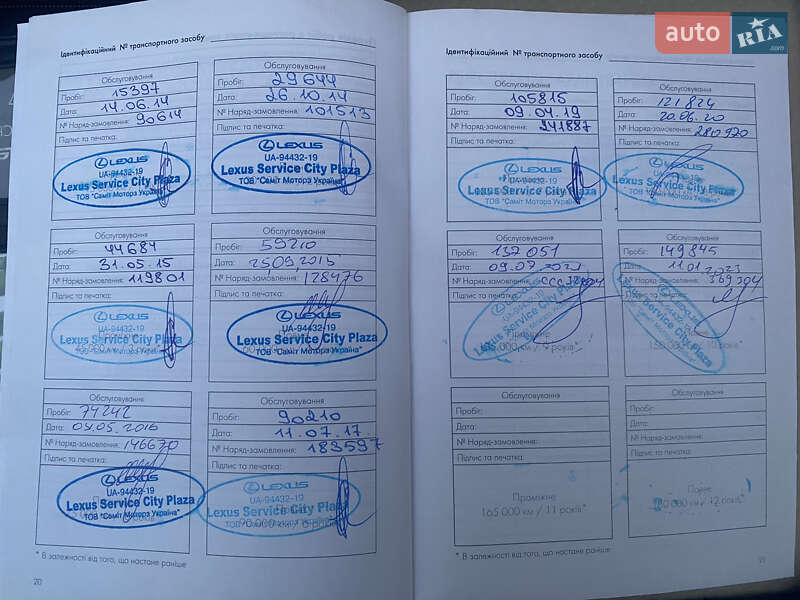 auto RIA.com
Ідентифікаційний № транспортного засобу
Обслуговування
Пробіг: 15397
Дата: 14.06.14
№ Наряд-замовлення: 90614
Підпис та печатка:
LEXUS
UA-94432-19
Lexus Service City Plaza
ТОВ "Саміт Моторз Україна"
Обслуговування
Пробіг: 29644
Дата: 26.10.14
№ Наряд-замовлення: 101513
Підпис та печатка:
LEXUS
UA-94432-19
Lexus Service City Plaza
ТОВ "Саміт Моторз Україна"
Обслуговування
Пробіг: 44684
Дата: 31.05.15
№ Наряд-замовлення: 119801
Підпис та печатка:
LEXUS
UA-94432-19
Lexus Service City Plaza
ТОВ "Саміт Моторз Україна"
Обслуговування
Пробіг: 59210
Дата: 25.09.2015
№ Наряд-замовлення: 128476
Підпис та печатка:
LEXUS
UA-94432-19
Lexus Service City Plaza
ТОВ "Саміт Моторз Україна"
Обслуговування
Пробіг: 74242
Дата: 04.05.2016
№ Наряд-замовлення: 146670
Підпис та печатка:
LEXUS
UA-94432-19
Lexus Service City Plaza
ТОВ "Саміт Моторз Україна"
Обслуговування
Пробіг: 90210
Дата: 11.07.17
№ Наряд-замовлення: 183597
Підпис та печатка:
LEXUS
UA-94432-19
Lexus Service City Plaza
* В залежності від того, що настане раніше
20
Ідентифікаційний № транспортного засобу
Обслуговування
Пробіг: 105815
Дата: 09.04.19
№ Наряд-замовлення: 241887
Підпис та печатка:
LEXUS
UA-94432-19
Lexus Service City Plaza
ТОВ "Саміт Моторз Україна"
Обслуговування
Пробіг: 121824
Дата: 20.06.20
№ Наряд-замовлення: 280920
Підпис та печатка:
LEXUS
Lexus Service City Plaza
ТОВ "Саміт Моторз Україна"
Обслуговування
Пробіг: 137051
Дата: 09.07.2021
№ Наряд-замовлення:
Підпис та печатка:
LEXUS
UA-94432-19
Lexus Service City Plaza
Обслуговування
Пробіг: 149845
Дата: 11.01.2023
№ Наряд-замовлення: 369304
Підпис та печатка:
Lexus Service City Plaza
Обслуговування
Пробіг:
Дата:
№ Наряд-замовлення:
Підпис та печатка:
Проміжне
165 000 км / 11 років*
Обслуговування
Пробіг:
Дата:
№ Наряд-замовлення:
Підпис та печатка:
Повне
* В залежності від того, що настане раніше